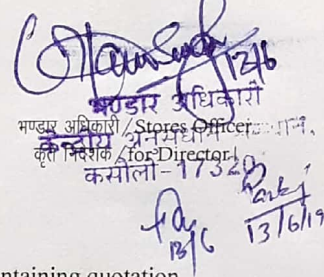 12/6
भण्डार अधिकारी
भण्डार अधिकारी / Stores Officer
केन्द्रीय अनुसंधान संस्थान,
कृते निदेशक / for Director
कसौली-173204
13/6
13/6/19
ntaining quotation